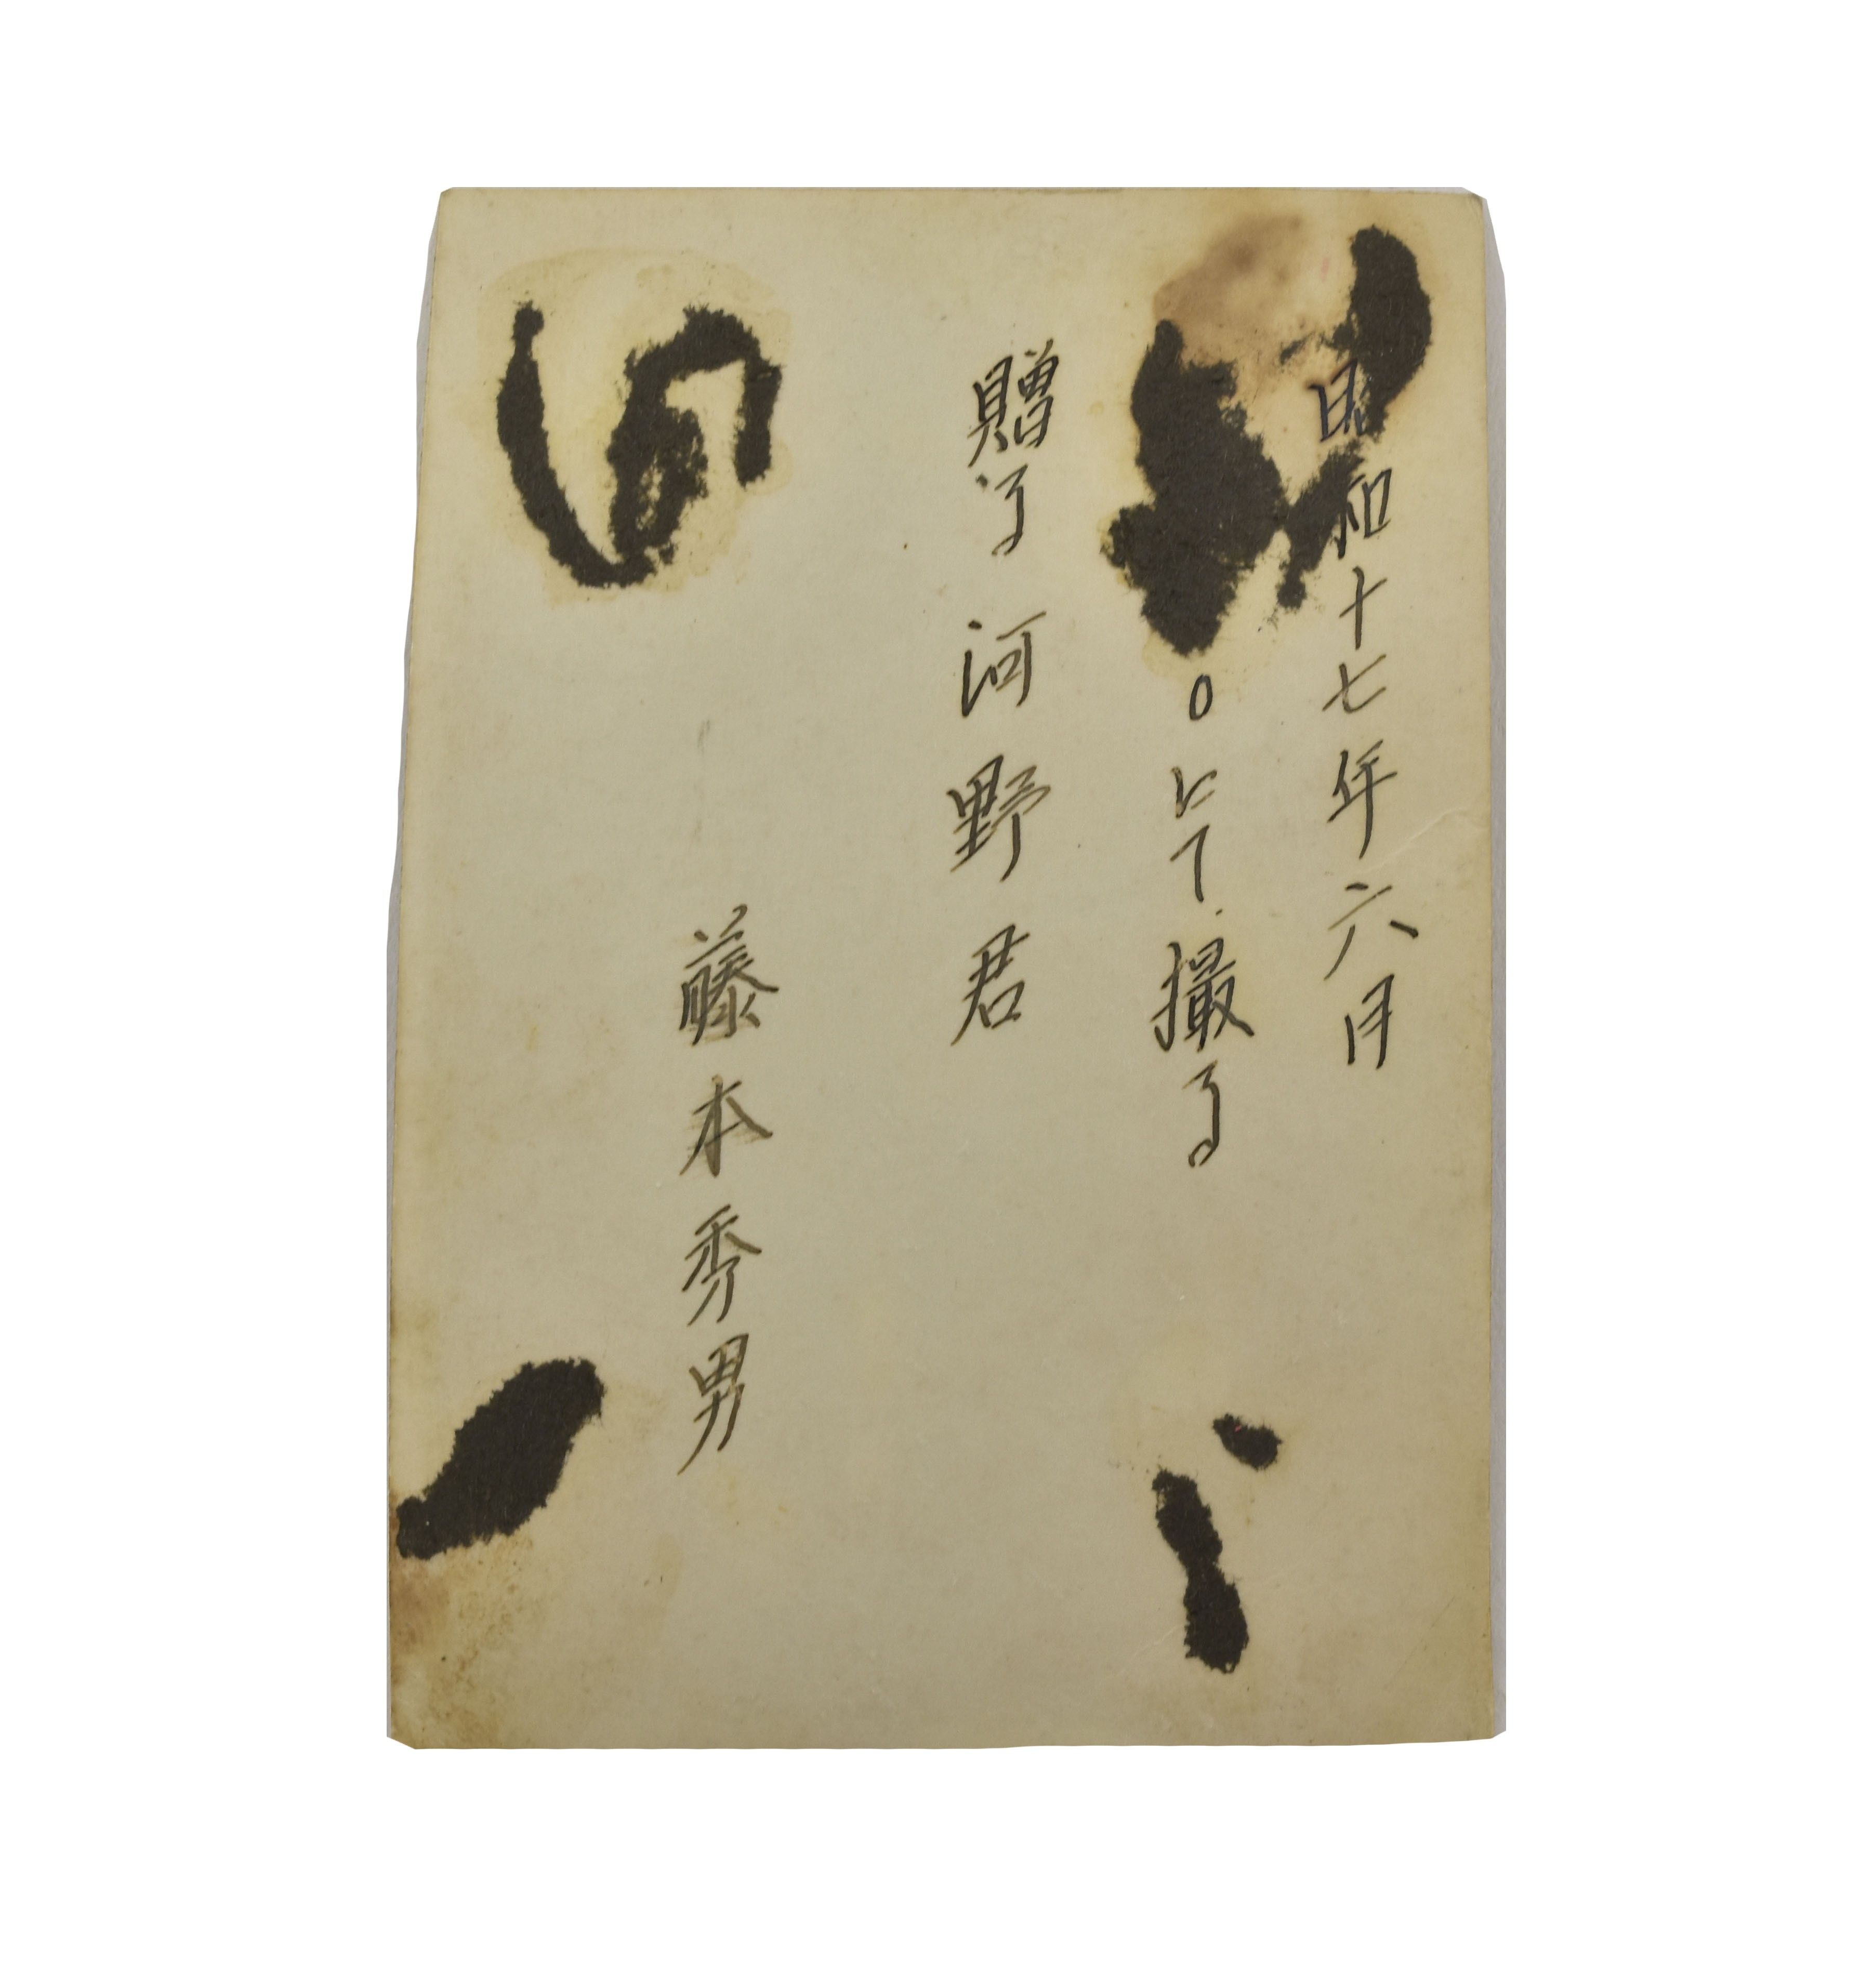 昭和十七年六月
〇にて撮る
贈る 河野君
藤本秀男